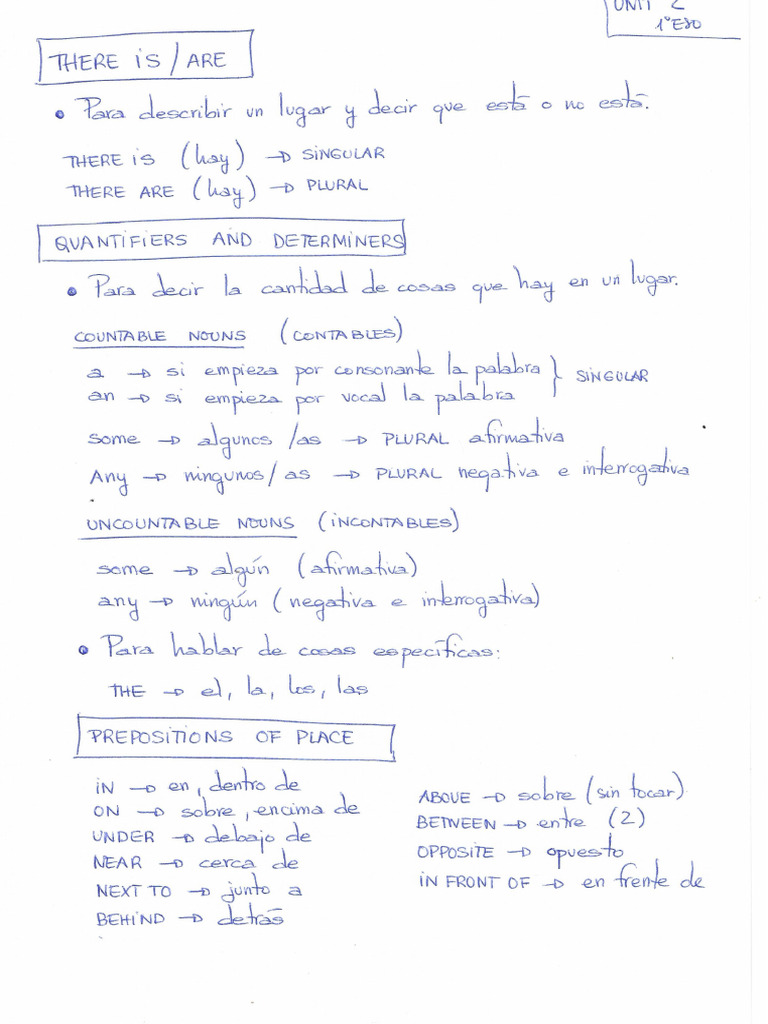 UNIT 2
1º ESO
THERE IS / ARE
• Para describir un lugar y decir que está o no está.
THERE IS (hay) → SINGULAR
THERE ARE (hay) → PLURAL
QUANTIFIERS AND DETERMINERS
• Para decir la cantidad de cosas que hay en un lugar.
COUNTABLE NOUNS (CONTABLES)
a → si empieza por consonante la palabra } SINGULAR
an → si empieza por vocal la palabra
some → algunos /as → PLURAL afirmativa
Any → ningunos/as → PLURAL negativa e interrogativa
UNCOUNTABLE NOUNS (INCONTABLES)
some → algún (afirmativa)
any → ningún (negativa e interrogativa)
• Para hablar de cosas específicas:
THE → el, la, los, las
PREPOSITIONS OF PLACE
IN → en, dentro de
ON → sobre, encima de
UNDER → debajo de
NEAR → cerca de
NEXT TO → junto a
BEHIND → detrás
ABOVE → sobre (sin tocar)
BETWEEN → entre (2)
OPPOSITE → opuesto
IN FRONT OF → en frente de